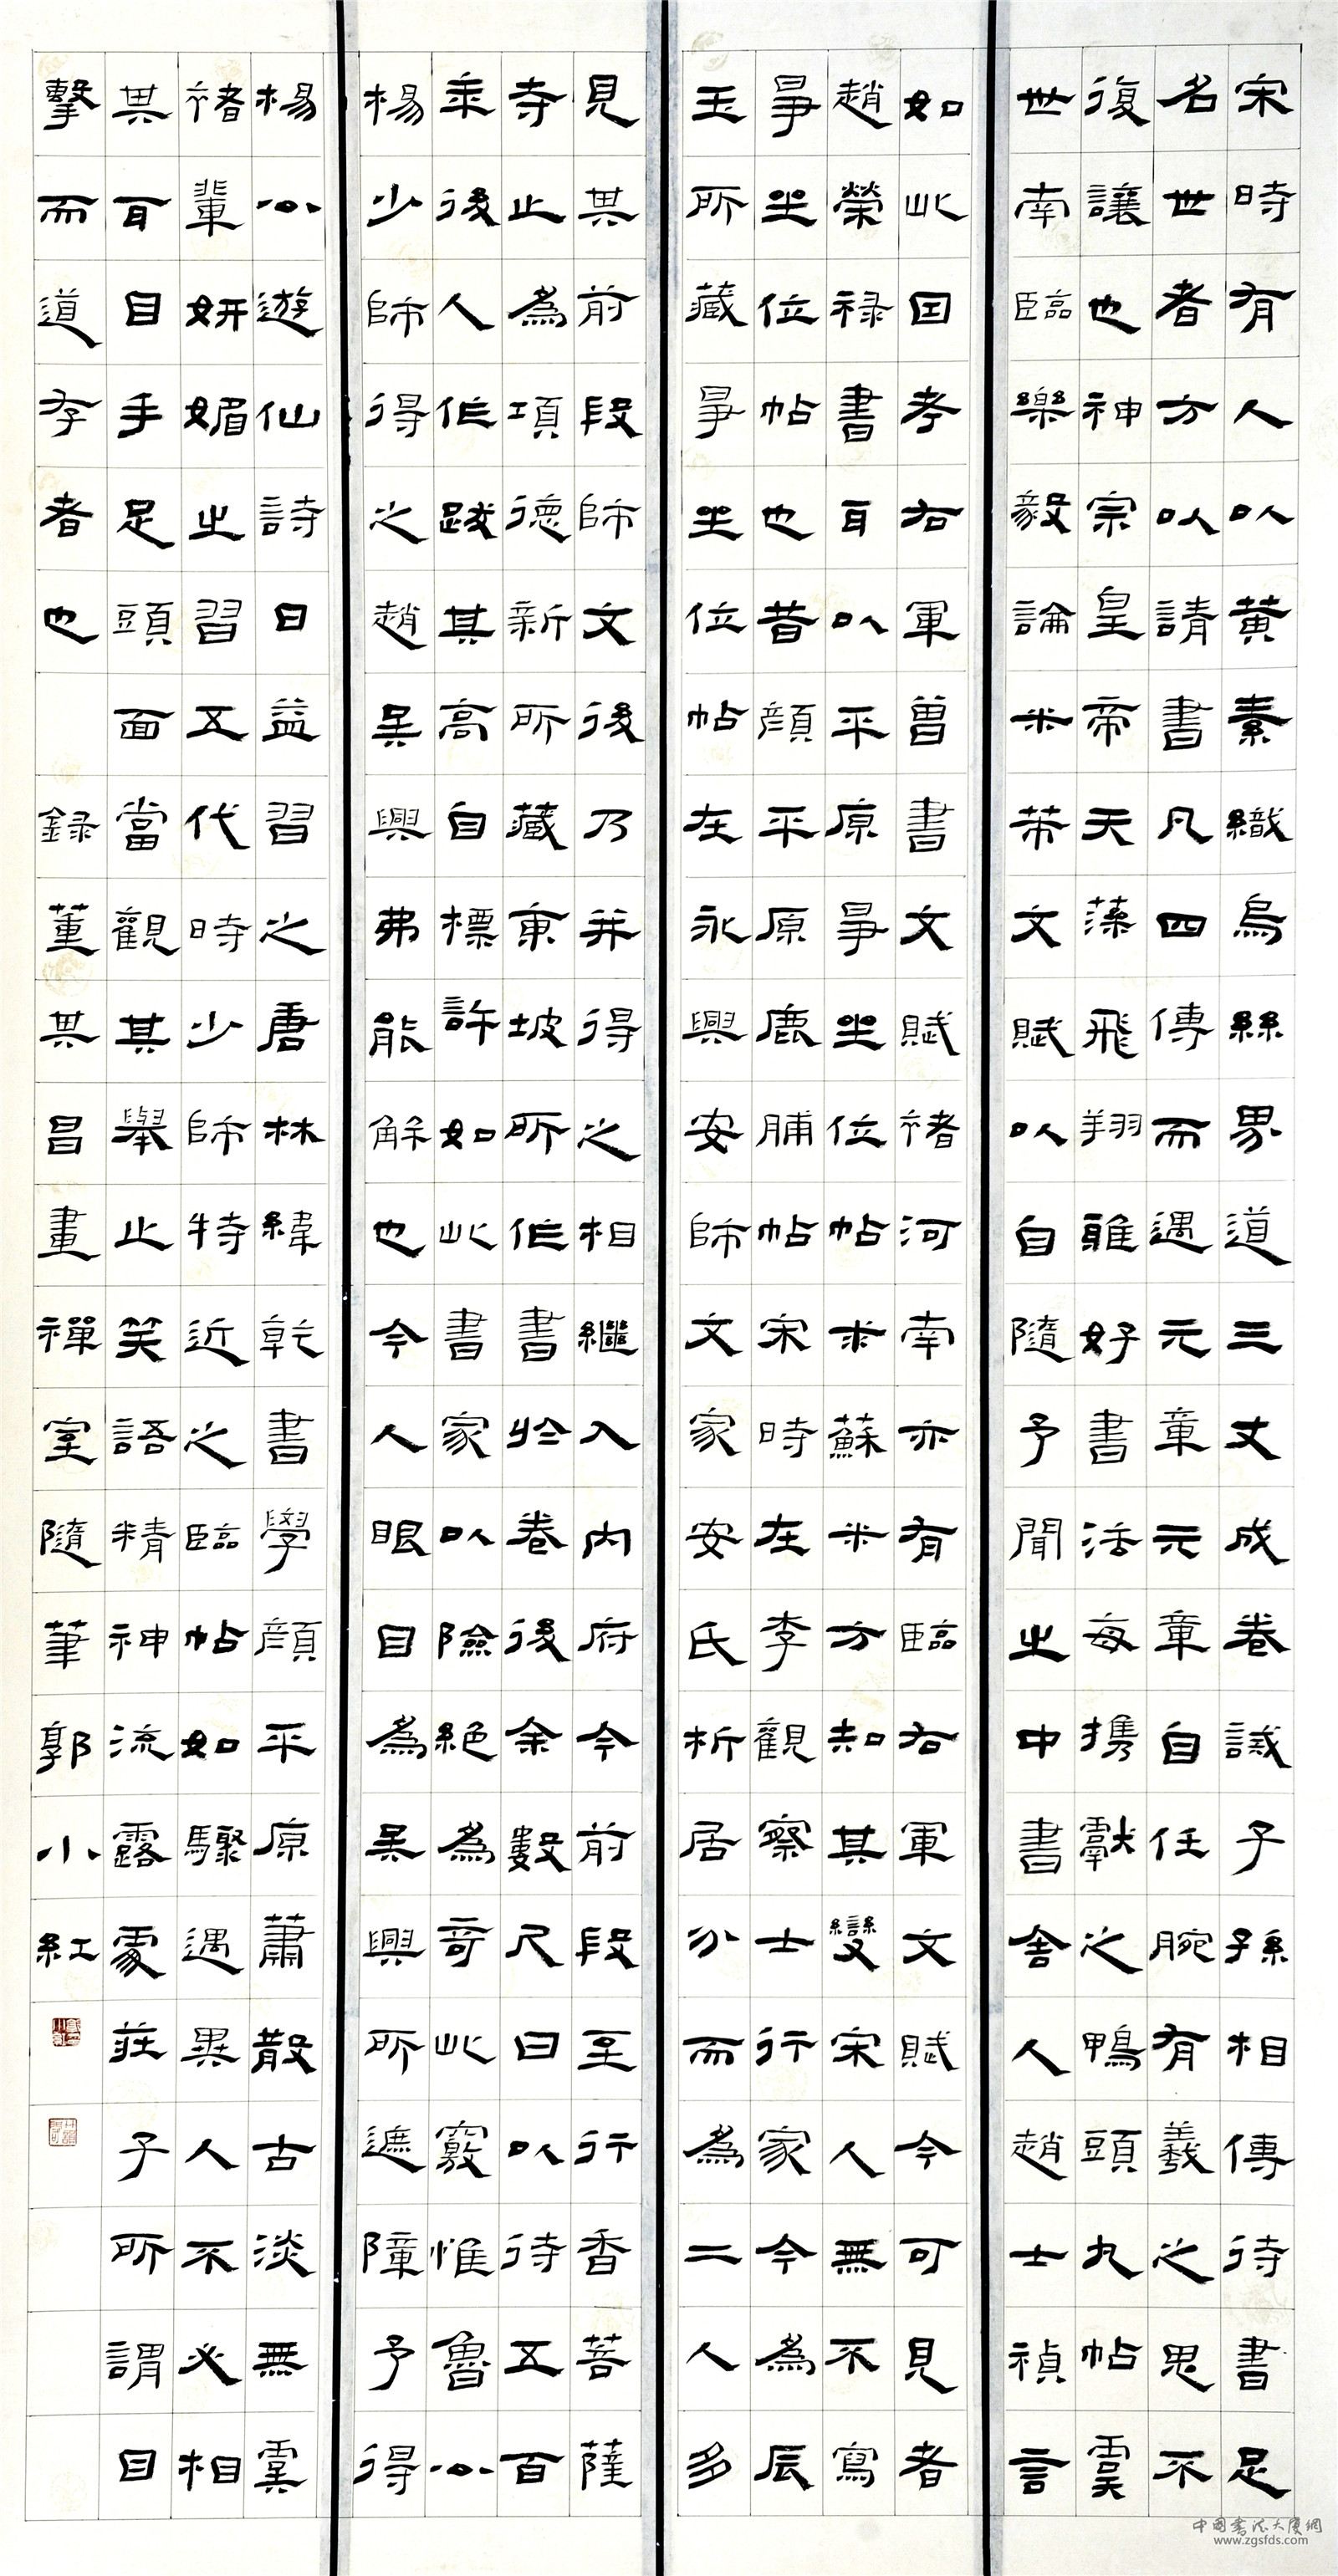 宋時有人以黄素織烏絲界道三丈成卷誡子孫相傳待書足
名世者方以請書凡四傳而遇元章元章自任腕有羲之思不
復讓也神宗皇帝天藻飛翔雅好書活每携獻之鴨頭丸帖虞
世南臨樂毅論米芾文賦以自隨予聞之中書舍人趙士禎言
如此因考右軍曾書文賦褚河南亦有臨右軍文賦今可見者
趙榮禄書耳以平原爭坐位帖求蘇米方知其變宋人無不寫
爭坐位帖也昔顔平原鹿脯帖宋時在李觀察士行家今為辰
玉所藏爭坐位帖在永興安師文家安氏析居分而為二人多
見其前段師文後乃并得之相繼入内府今前段至行香菩薩
寺止為項德新所藏東坡所作書於卷後余數尺曰以待五百
年後人作跋其高自標許如此書家以險絶為奇此竅惟魯公
楊少師得之趙吳興弗能解也今人眼目為吳興所遮障予得
楊公遊仙詩日益習之唐林緯乾書學顔平原蕭散古淡無虞
褚輩妍媚之習五代時少師特近之臨帖如驟遇異人不必相
其耳目手足頭面當觀其舉止笑語精神流露處莊子所謂目
擊而道存者也 錄董其昌畫禪室隨筆郭小紅
中国書法大廈網
www.zgsfds.com